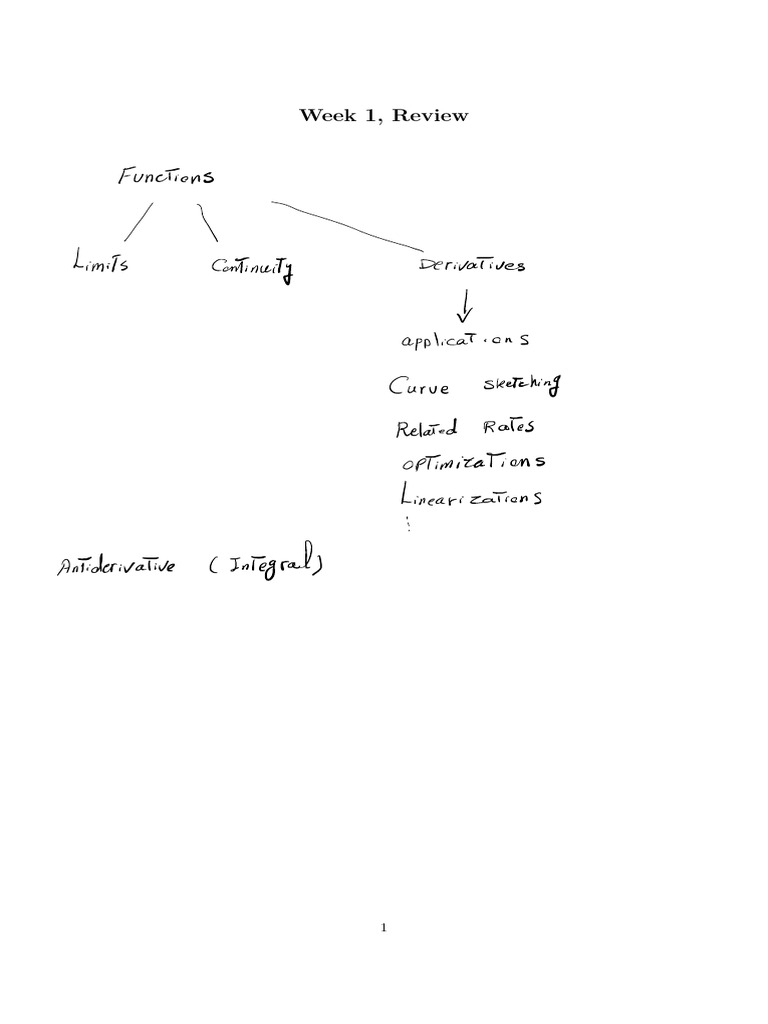 Week 1, Review
Functions
Limits Continuity Derivatives
applications
Curve sketching
Related Rates
optimizations
Linearizations
Antiderivative (Integral)
1